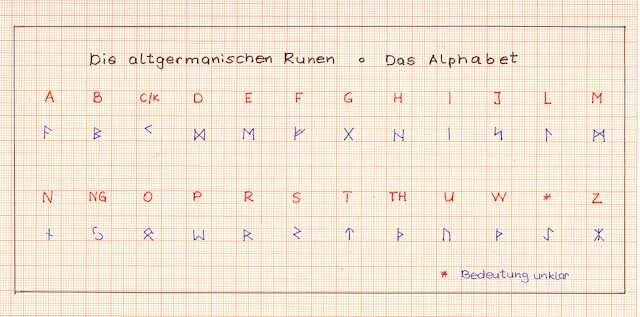 Die altgermanischen Runen o Das Alphabet
A B C/K D E F G H I J L M
ᚨ ᛒ ᚲ ᛞ ᛖ ᚠ ᚷ ᚺ ᛁ ᛃ ᛚ ᛗ
N NG O P R S T TH U W * Z
ᚾ ᛜ ᛟ ᛈ ᚱ ᛊ ᛏ ᚦ ᚢ ᚹ ᛇ ᛉ
* Bedeutung unklar